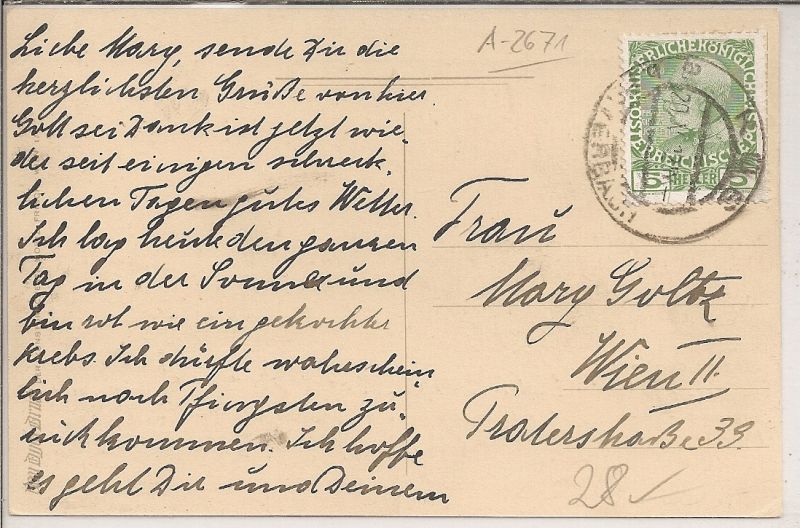 Liebe Mary, sende Dir die
herzlichsten Grüße von hier.
Gott sei Dank ist jetzt wie-
der seit einigen schreck-
lichen Tagen gutes Wetter.
Ich lag heute den ganzen
Tag in der Sonne und
bin rot wie ein gekochter
Krebs. Ich dürfte wahrschein-
lich nach Pfingsten zu-
rückkommen. Ich hoffe
es geht Dir und Deinem
A-2671
KAISERLICHE KÖNIGLICHE
ÖSTERREICHISCHE
5 HELLER 5
Frau
Mary Goltz
Wien II.
Praterstraße 33
28